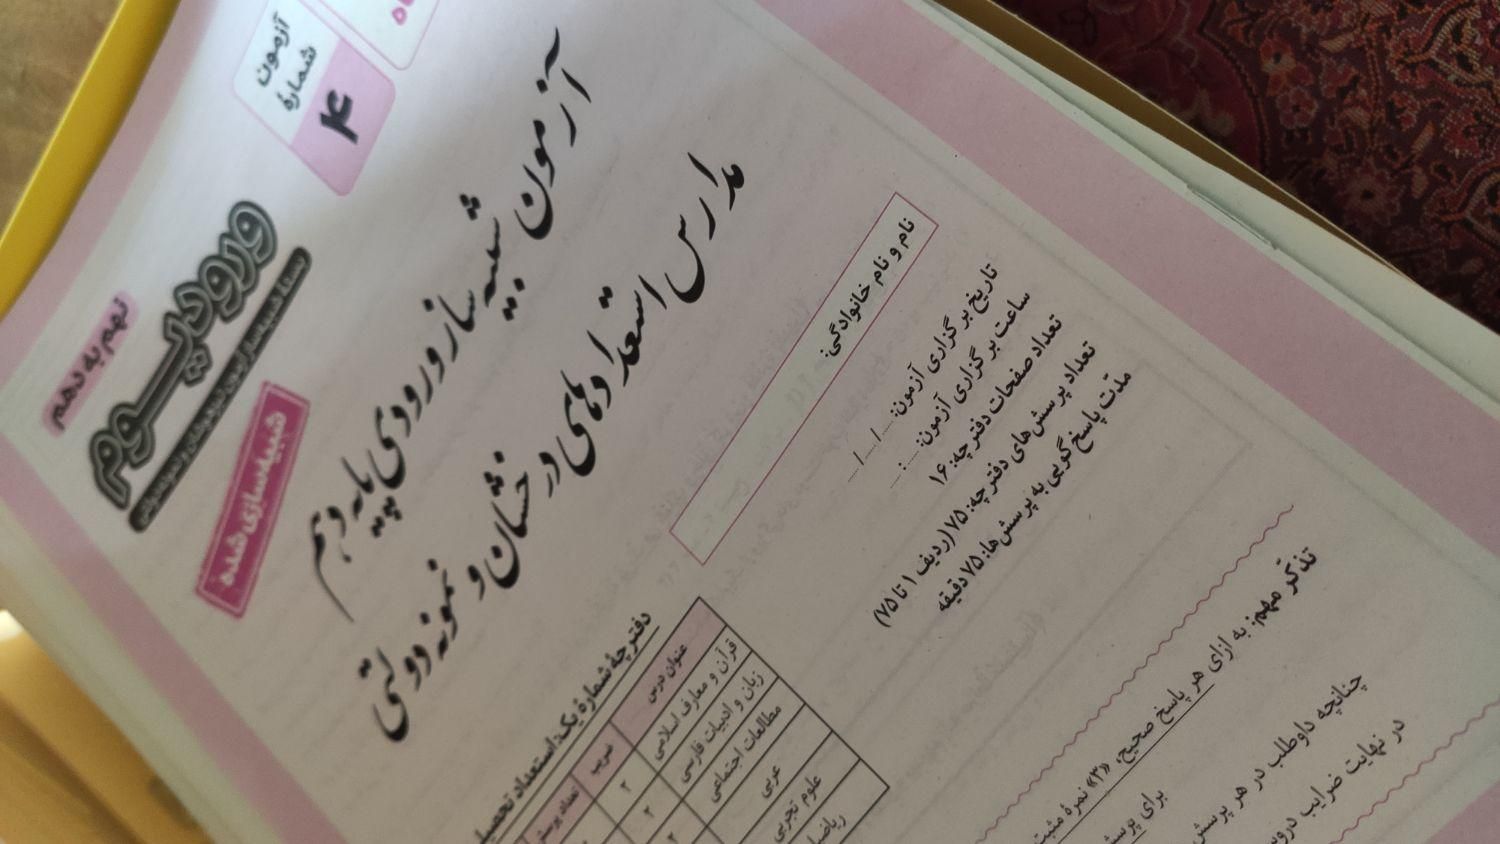 آزمون
شمارهٔ
۴
نهم به دهم
ورودیوم
شبیه‌سازی شده
آزمون شبیه ساز ورودی پایه دهم
مدارس استعدادهای درخشان و نمونه دولتی
نام و نام خانوادگی:
تاریخ برگزاری آزمون: ...../...../.....
ساعت برگزاری آزمون: .....:.....
تعداد صفحات دفترچه: ۱۶
تعداد پرسش‌های دفترچه: ۷۵ (ردیف ۱ تا ۷۵)
مدّت پاسخ‌گویی به پرسش‌ها: ۷۵ دقیقه
دفترچهٔ شمارهٔ یک: استعداد
عنوان درس ضریب تعداد
قرآن و معارف اسلامی ۲
زبان و ادبیات فارسی ۲
مطالعات اجتماعی ۲
عربی
علوم تجربی
تذکّر مهم: به ازای هر پاسخ صحیح، «۳» نمرهٔ
چنانچه داوطلب در هر
برای
در نهایت ضرایب